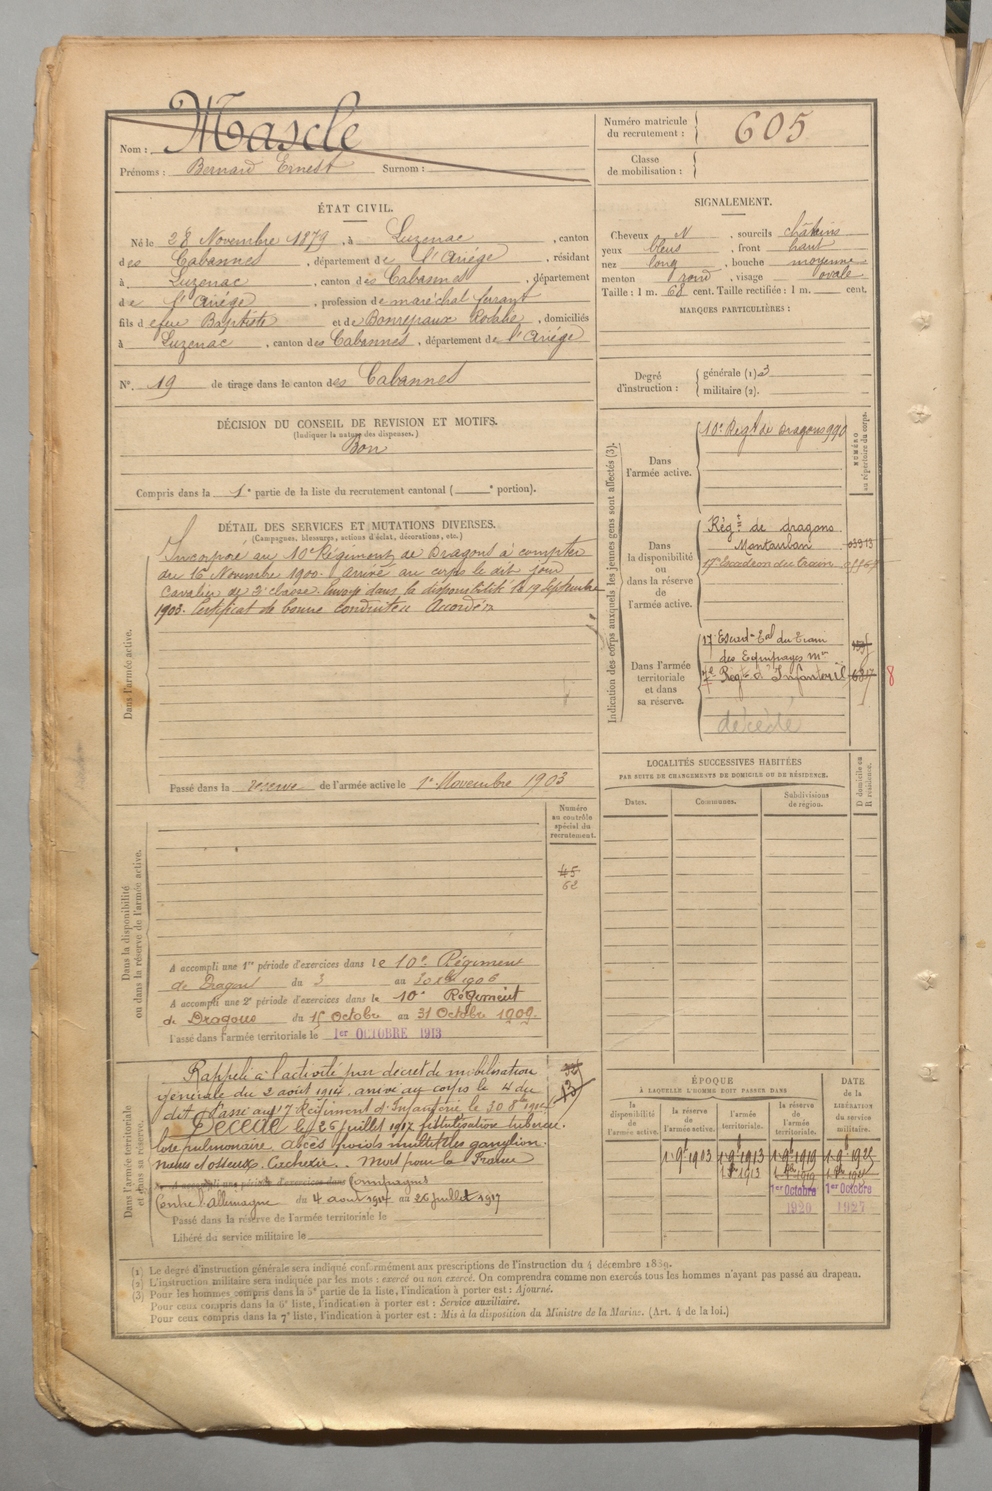 Nom : Mascle
Prénoms : Bernard Ernest Surnom :
Numéro matricule du recrutement : 605
Classe de mobilisation :
ÉTAT CIVIL.
Né le 28 Novembre 1879, à Luzenac, canton
des Cabannes, département de l'Ariége, résidant
à Luzenac, canton des Cabannes, département
de l'Ariége, profession de maréchal ferrant
fils de feu Baptiste et de Bonrepaux Rosalie, domiciliés
à Luzenac, canton des Cabannes, département de l'Ariége
N° 19 de tirage dans le canton des Cabannes
SIGNALEMENT.
Cheveux N, sourcils châtains
yeux bleus, front haut
nez long, bouche moyenne
menton rond, visage ovale
Taille : 1 m. 68 cent. Taille rectifiée : 1 m. cent.
MARQUES PARTICULIÈRES :
Degré d'instruction : générale (1) 3
militaire (2).
DÉCISION DU CONSEIL DE REVISION ET MOTIFS.
(Indiquer la nature des dispenses.)
Bon
Compris dans la 1e partie de la liste du recrutement cantonal ( e portion).
DÉTAIL DES SERVICES ET MUTATIONS DIVERSES.
(Campagnes, blessures, actions d'éclat, décorations, etc.)
Dans l'armée active.
Incorporé au 10e Régiment de Dragons à compter
du 16 Novembre 1900. arrivé au corps le dit jour
Cavalier de 2e classe. Envoyé dans la disponibilité le 19 Septembre
1903. Certificat de bonne conduite Accordé
Passé dans la réserve de l'armée active le 1er Novembre 1903
Indication des corps auxquels les jeunes gens sont affectés (3).
NUMÉRO au répertoire du corps.
Dans l'armée active.
10e Régt de Dragons 990
Dans la disponibilité ou dans la réserve de l'armée active.
Régt de dragons
Montauban
17e Escadron du train
Dans l'armée territoriale et dans sa réserve.
17e Escadn Eal du Train
des Equipages mre
7e Régt d'Infanterie
8
décédé
LOCALITÉS SUCCESSIVES HABITÉES
PAR SUITE DE CHANGEMENTS DE DOMICILE OU DE RÉSIDENCE.
Dates.
Communes.
Subdivisions de région.
D domicile ou R résidence.
Dans la disponibilité ou dans la réserve de l'armée active.
Numéro au contrôle spécial du recrutement.
45
62
A accompli une 1re période d'exercices dans le 10e Régiment
de Dragons du 3 au 30 1906
A accompli une 2e période d'exercices dans le 10e Régiment
de Dragons du 15 Octobre au 31 Octobre 1909.
Passé dans l'armée territoriale le 1er OCTOBRE 1913
Dans l'armée territoriale et dans sa réserve.
Rappelé à l'activité par décret de mobilisation
générale du 2 août 1914. arrivé au corps le 4 du
dit. Passé au 7e Régiment d'Infanterie le 30 8bre 1914
Décédé le 26 juillet 1917
lose pulmonaire. abcès froids multiples ganglion-
naires et osseux. Cachexie. Mort pour la France
A accompli une période d'exercices dans Campagnes
Contre l'Allemagne du 4 août 1914 au 26 juillet 1917
Passé dans la réserve de l'armée territoriale le
Libéré du service militaire le
ÉPOQUE
À LAQUELLE L'HOMME DOIT PASSER DANS
la disponibilité de l'armée active.
la réserve de l'armée active.
l'armée territoriale.
la réserve de l'armée territoriale.
DATE de la LIBÉRATION du service militaire.
1er Octobre
1920
1er Octobre
1927
(1) Le degré d'instruction générale sera indiqué conformément aux prescriptions de l'instruction du 4 décembre 1889.
(2) L'instruction militaire sera indiquée par les mots : exercé ou non exercé. On comprendra comme non exercés tous les hommes n'ayant pas passé au drapeau.
(3) Pour les hommes compris dans la 5e partie de la liste, l'indication à porter est : Ajourné.
Pour ceux compris dans la 6e liste, l'indication à porter est : Service auxiliaire.
Pour ceux compris dans la 7e liste, l'indication à porter est : Mis à la disposition du Ministre de la Marine. (Art. 4 de la loi.)